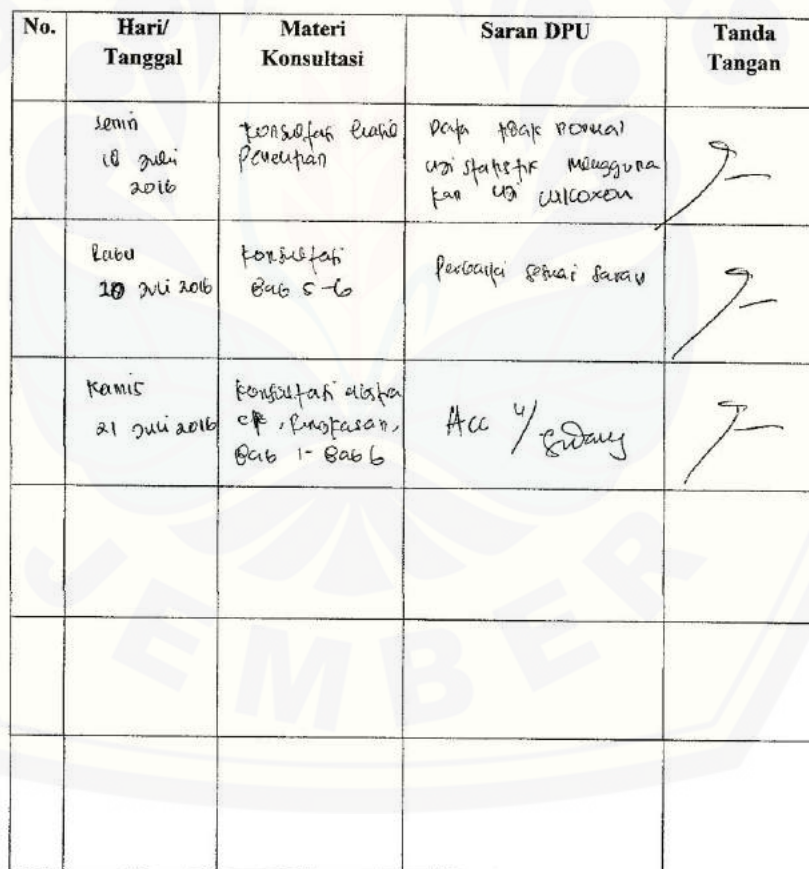 No.
Hari/
Tanggal
Materi
Konsultasi
Saran DPU
Tanda
Tangan
Senin
18 Juli
2016
Konsultasi hasil
Penelitian
Data tidak normal
uji statistik mengguna
kan uji wilcoxon
Rabu
Juli 2016
Konsultasi
Bab 5-6
Perbaiki sesuai saran
Kamis
21 Juli 2016
Konsultasi abstra
, Ringkasan,
Bab 1- Bab 6
Acc u/ Sidang
JEMBER